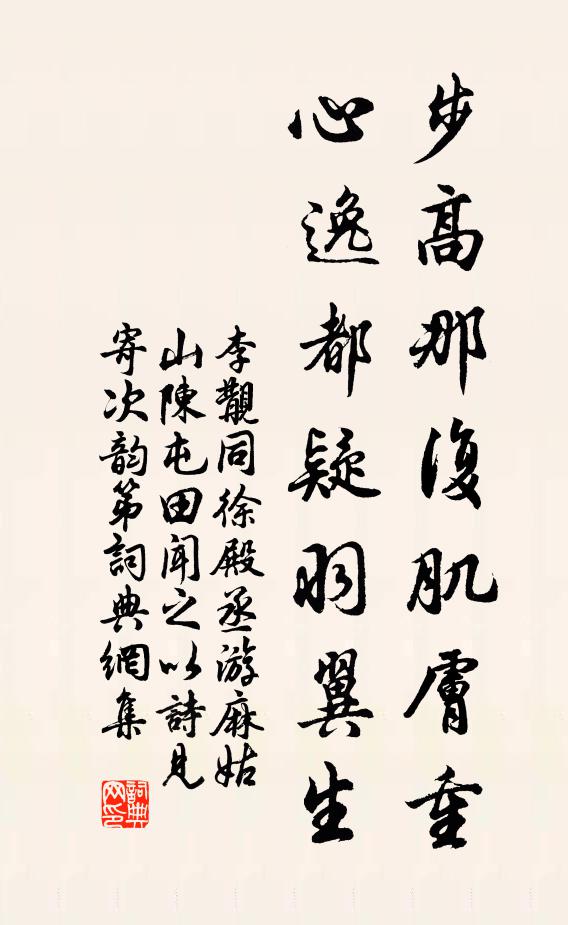 步高那復肌膚重
心逸都疑羽翼生
李覯同徐殿丞游麻姑
山陳屯田聞之以詩見
寄次韵第詞典網集
詞典网印